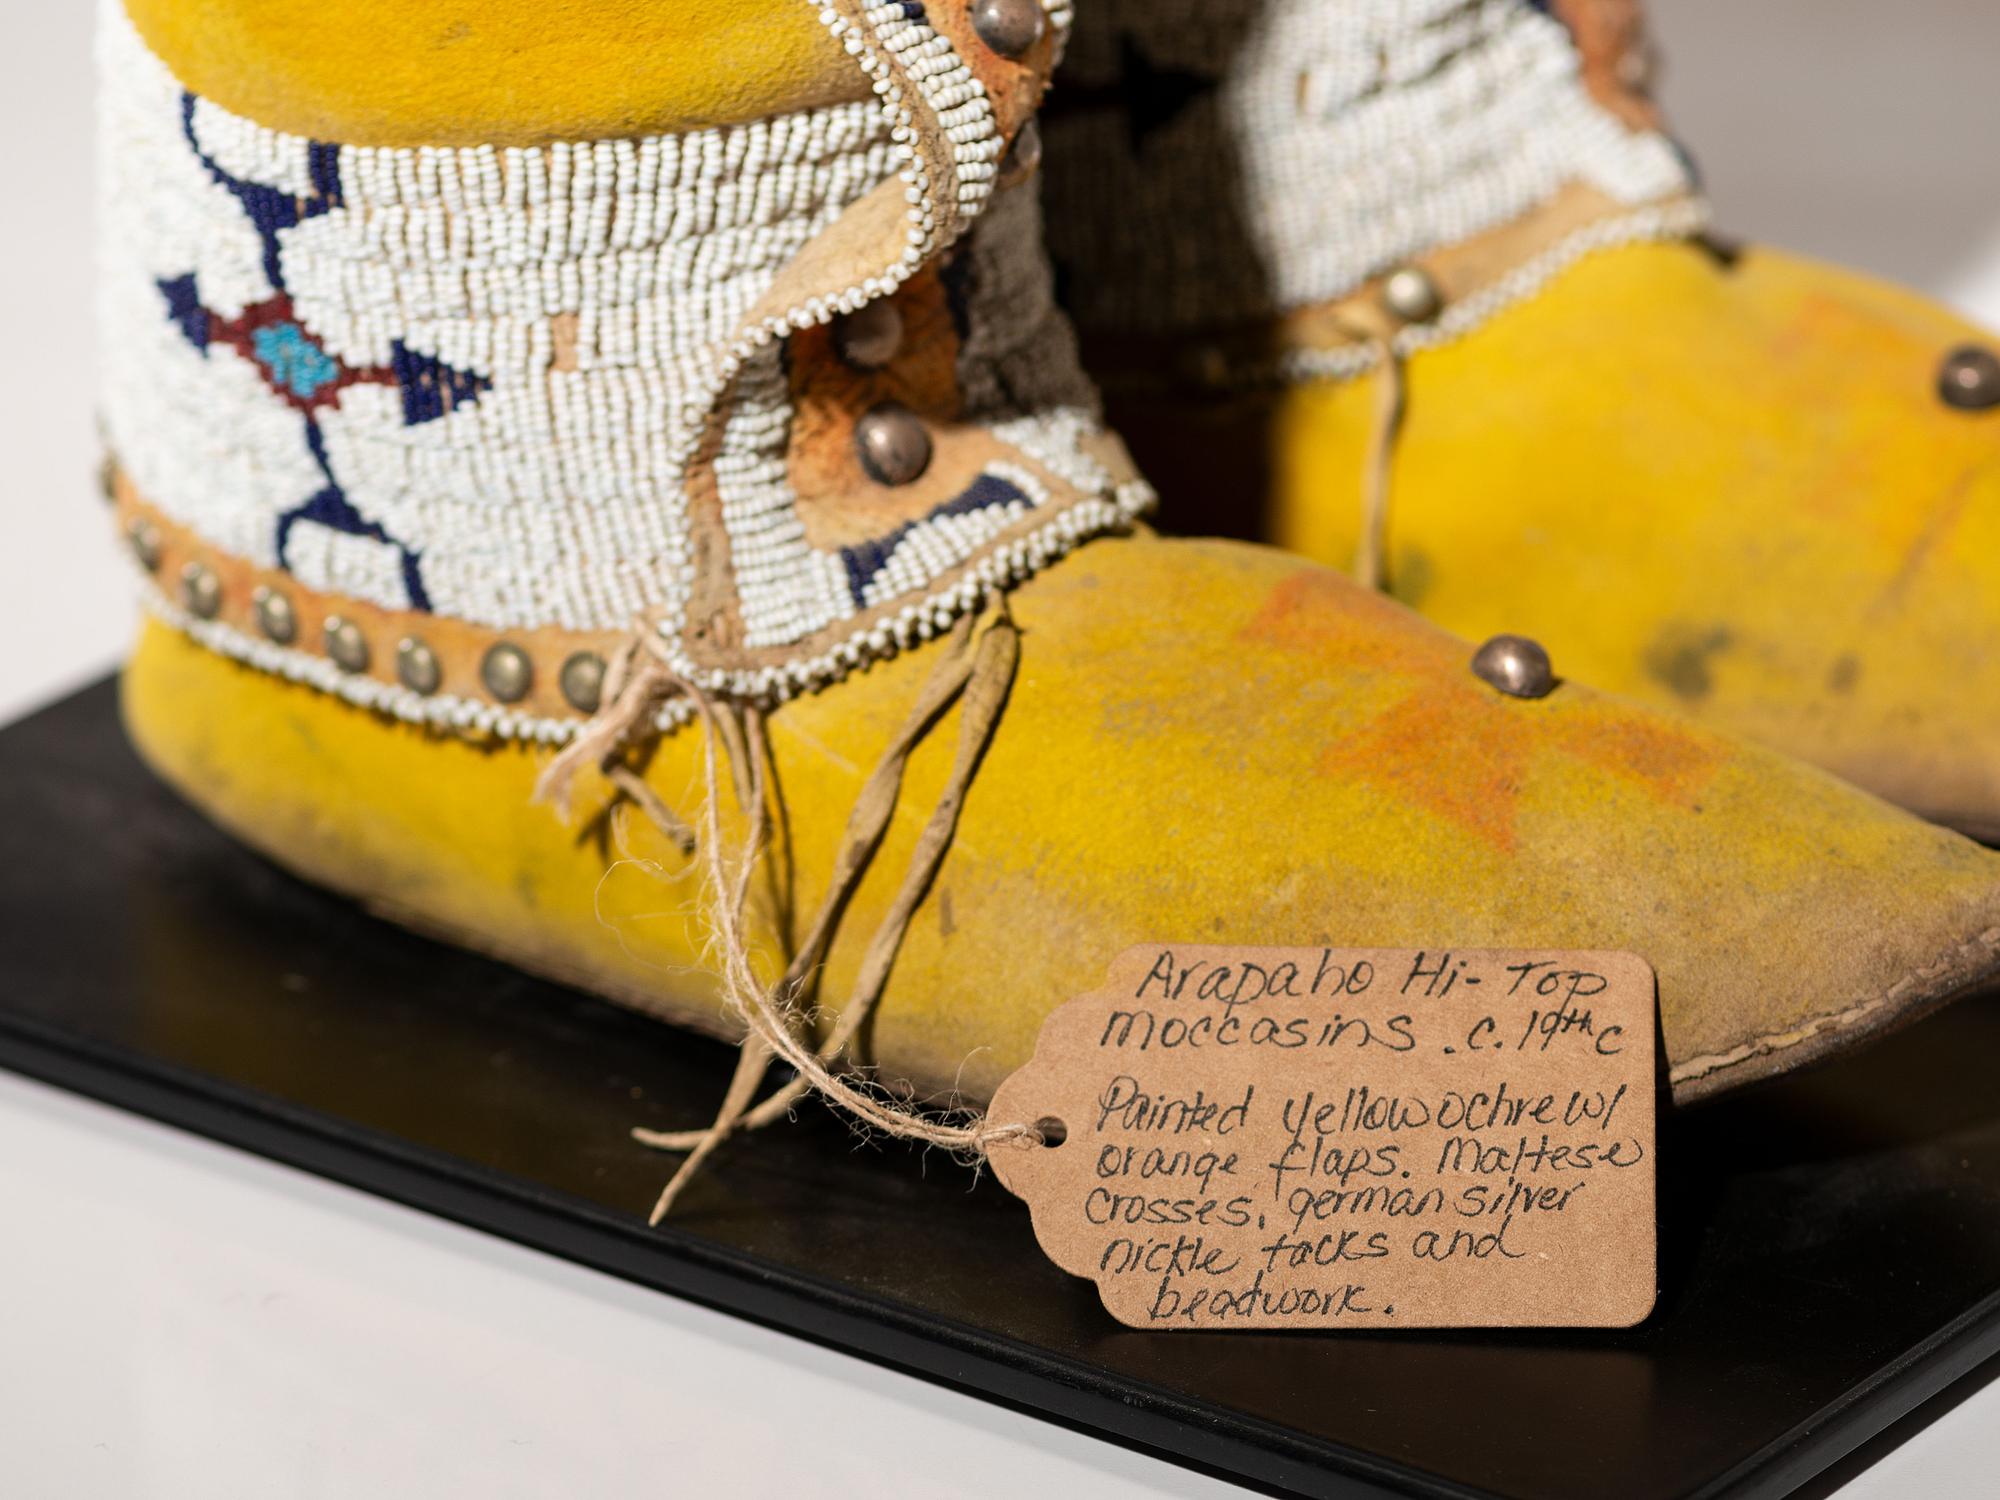 Arapaho Hi-Top
Moccasins .c.19th c
Painted yellow ochre w/
orange flaps. Maltese
crosses, german silver
nickle tacks and
beadwork.